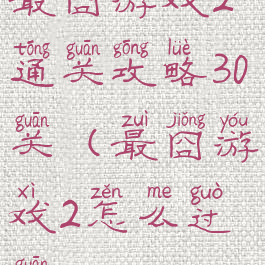 最囧游戏2
tōng guān gōng lüè
通关攻略30
guān zuì jiǒng yóu
关（最囧游
xì zěn me guò
戏2怎么过
guān